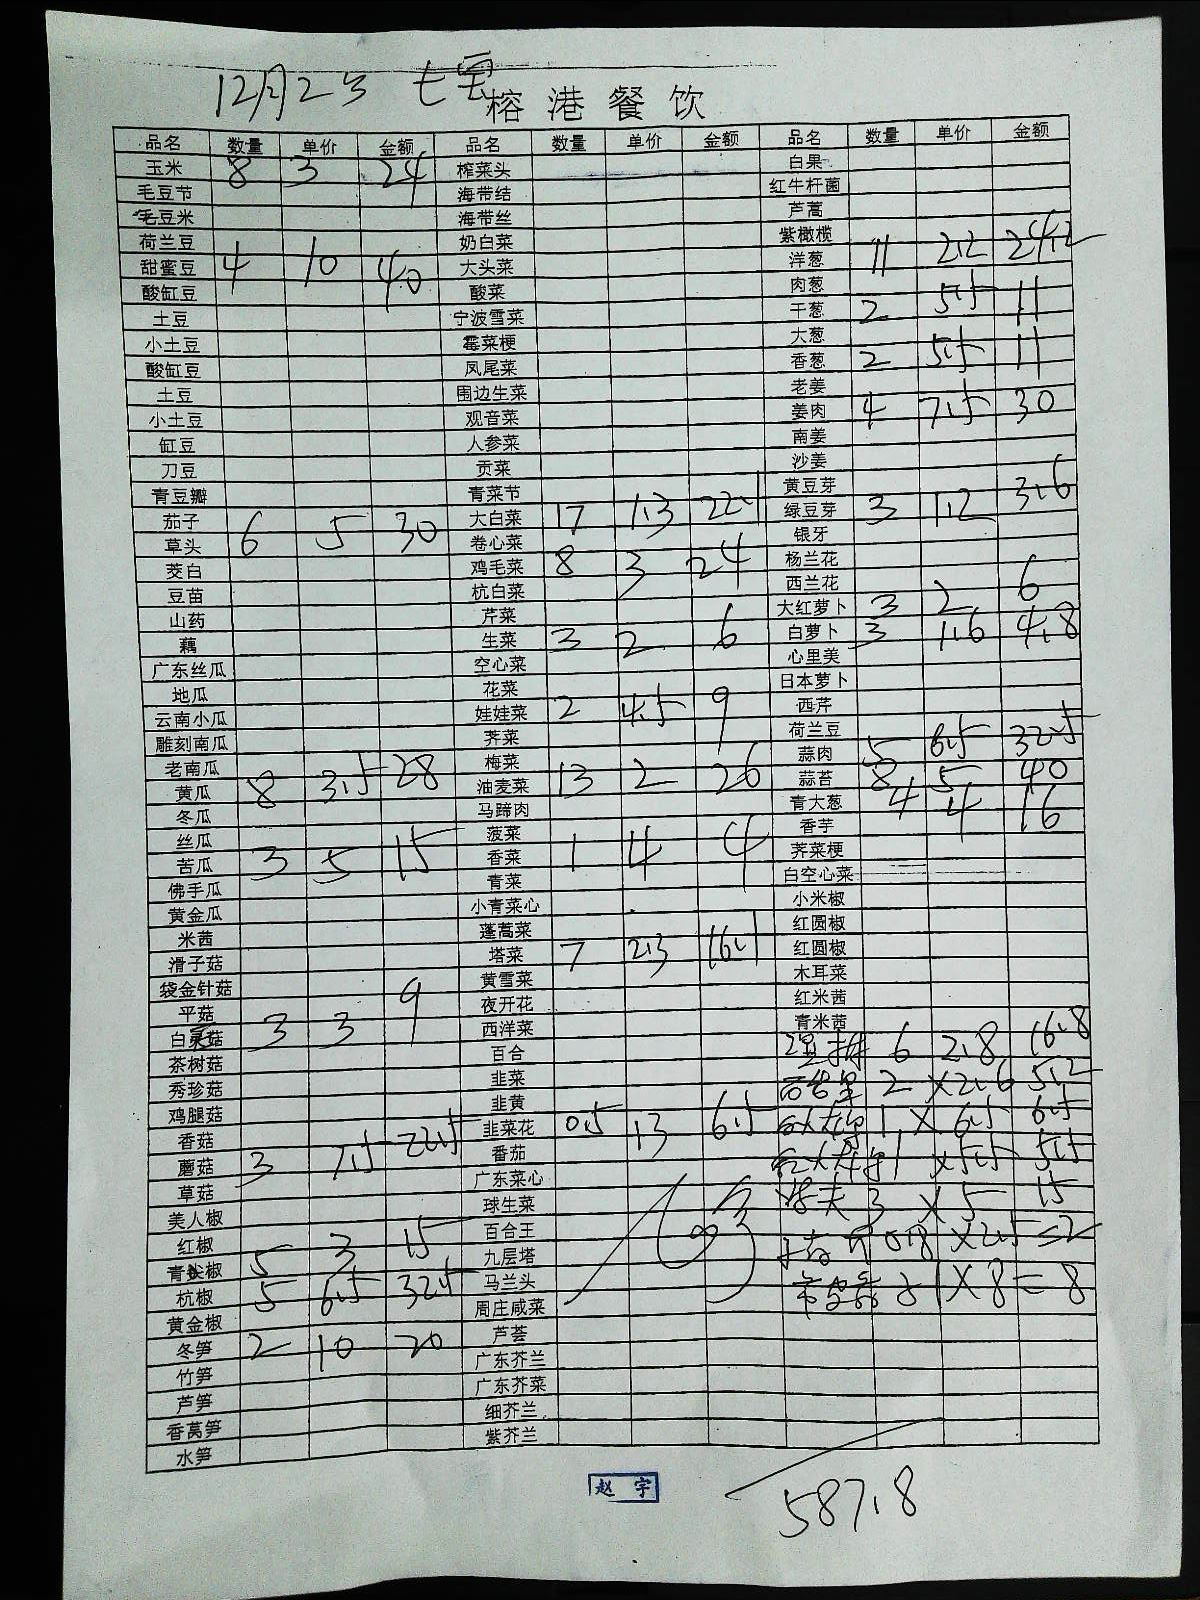 12月23 七宝
榕港餐饮
品名 数量 单价 金额 品名 数量 单价 金额 品名 数量 单价 金额
玉米 8 3 24 榨菜头 白果
毛豆节 海带结 红牛杆菌
毛豆米 海带丝 芦蒿
荷兰豆 奶白菜 紫橄榄
甜蜜豆 4 10 40 大头菜 洋葱 11 2.2 24.2
酸缸豆 酸菜 肉葱
土豆 宁波雪菜 干葱 2 5.5 11
小土豆 霉菜梗 大葱
酸缸豆 凤尾菜 香葱 2 5.5 11
土豆 围边生菜 老姜
小土豆 观音菜 姜肉 4 7.5 30
缸豆 人参菜 南姜
刀豆 贡菜 沙姜
青豆瓣 青菜节 黄豆芽
茄子 6 5 30 大白菜 17 1.3 22.1 绿豆芽 3 1.2 3.6
草头 卷心菜 银牙
茭白 鸡毛菜 8 3 24 杨兰花
豆苗 杭白菜 西兰花
山药 芹菜 大红萝卜 3 2 6
藕 生菜 3 2 6 白萝卜 3 1.6 4.8
广东丝瓜 空心菜 心里美
地瓜 花菜 日本萝卜
云南小瓜 娃娃菜 2 4.5 9 西芹
雕刻南瓜 荠菜 荷兰豆
老南瓜 梅菜 蒜肉 5 6.5 32.5
黄瓜 8 3.5 28 油麦菜 13 2 26 蒜苔 8 5 40
冬瓜 马蹄肉 青大葱 4 4 16
丝瓜 菠菜 香芋
苦瓜 3 5 15 香菜 1 4 4 荠菜梗
佛手瓜 青菜 白空心菜
黄金瓜 小青菜心 小米椒
米茜 蓬蒿菜 红圆椒
滑子菇 塔菜 7 2.3 16.1 红圆椒
袋金针菇 黄雪菜 木耳菜
平菇 夜开花 红米茜
白灵菇 3 3 9 西洋菜 青米茜
茶树菇 百合 6 2.8 16.8
秀珍菇 韭菜 2 × 2.6 5.2
鸡腿菇 韭黄
香菇 韭菜花 0.5 13 6.5 1 × 6.5 6.5
蘑菇 3 7.5 22.5 番茄 1 × 5.5 5.5
草菇 广东菜心
美人椒 球生菜 3 × 5 15
红椒 百合王 0.8 × 2.5 = 2
青尖椒 5 3 15 九层塔
杭椒 5 6.5 32.5 马兰头 1 × 8 = 8
黄金椒 周庄咸菜
冬笋 2 10 20 芦荟
竹笋 广东芥兰
芦笋 广东芥菜
香莴笋 细芥兰
水笋 紫芥兰
赵宇
587.8